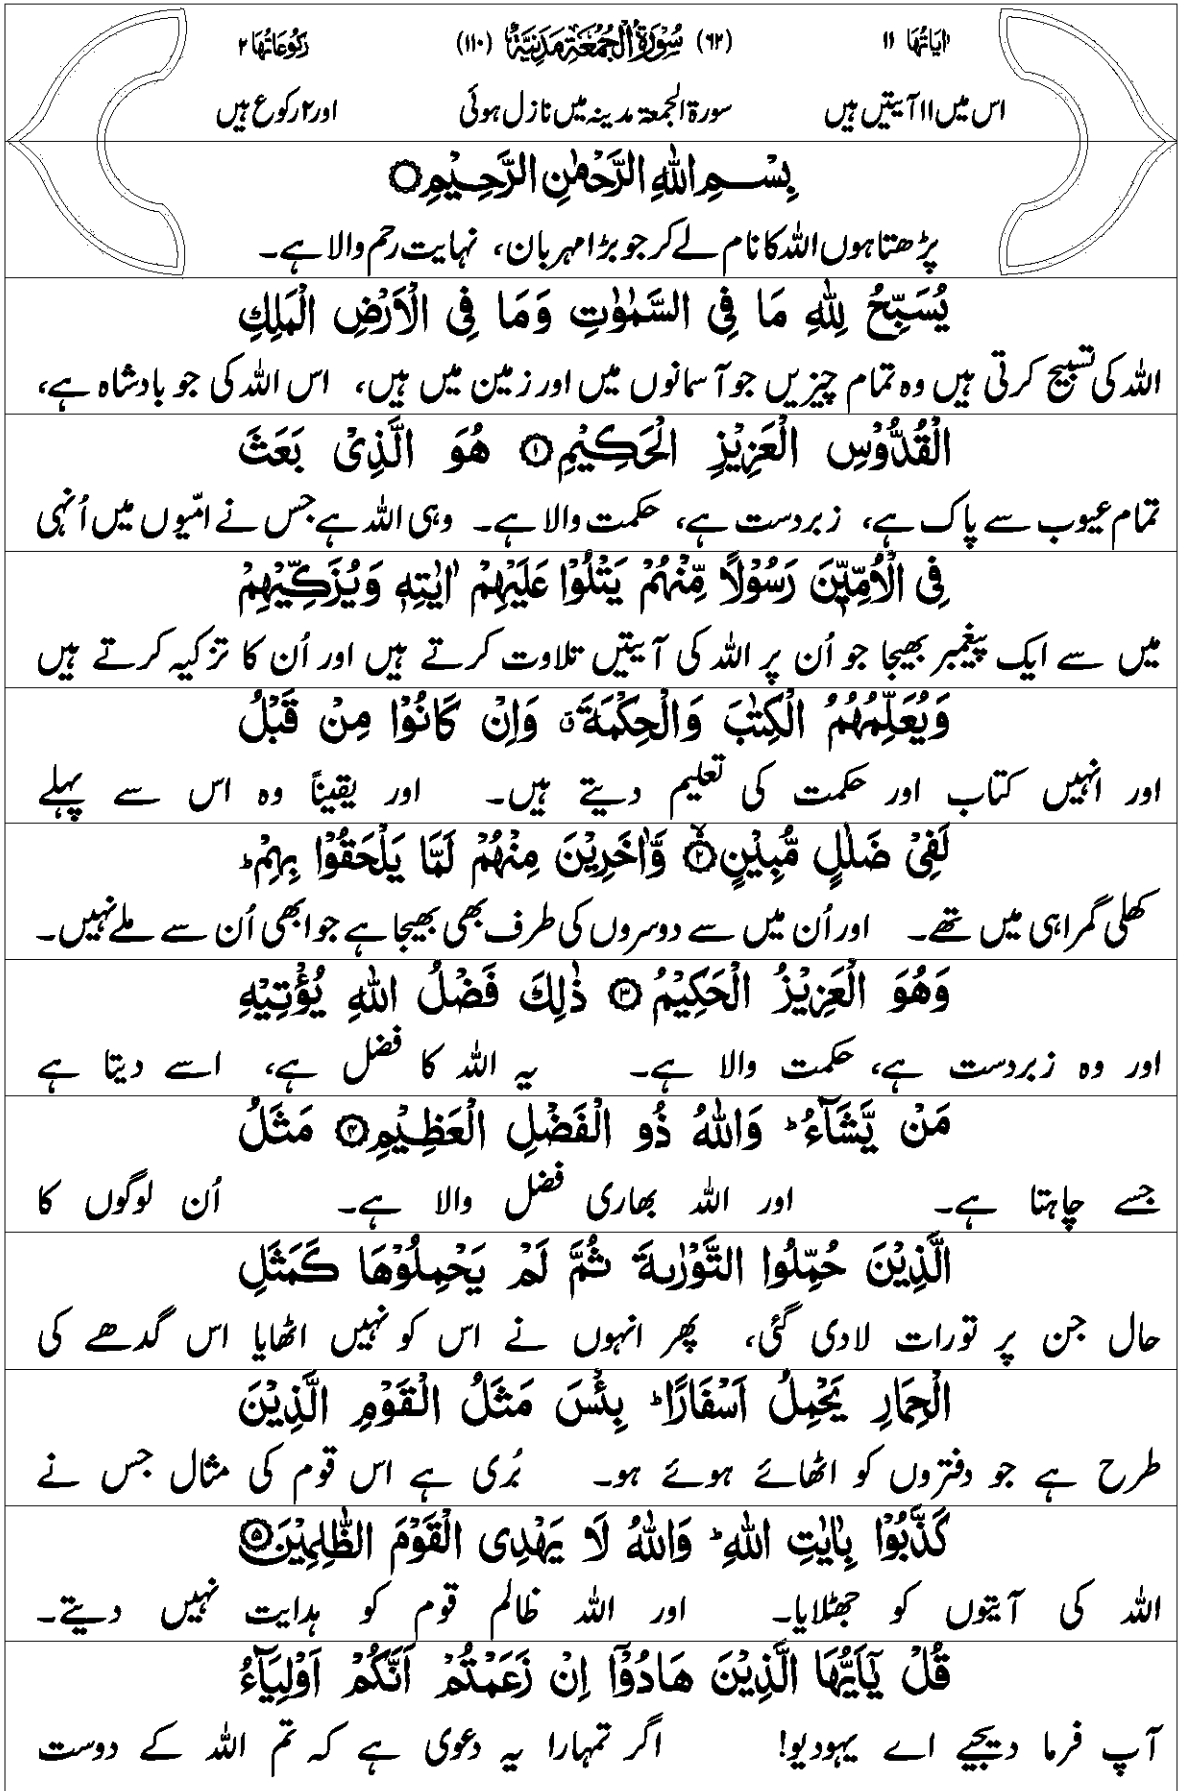 اٰیَاتُهَا ۱۱ (۶۲) سُوْرَةُ الْجُمُعَةِ مَدَنِیَّةٌ (۱۱۰) رُكُوْعَاتُهَا ۲
اس میں ۱۱ آیتیں ہیں سورۃ الجمعۃ مدینہ میں نازل ہوئی اور ۲ رکوع ہیں
بِسْمِ اللّٰهِ الرَّحْمٰنِ الرَّحِیْمِ○
پڑھتا ہوں اللہ کا نام لے کر جو بڑا مہربان، نہایت رحم والا ہے۔
یُسَبِّحُ لِلّٰهِ مَا فِی السَّمٰوٰتِ وَمَا فِی الْاَرْضِ الْمَلِكِ
اللہ کی تسبیح کرتی ہیں وہ تمام چیزیں جو آسمانوں میں اور زمین میں ہیں، اس اللہ کی جو بادشاہ ہے،
الْقُدُّوْسِ الْعَزِیْزِ الْحَكِیْمِ۝۱ هُوَ الَّذِیْ بَعَثَ
تمام عیوب سے پاک ہے، زبردست ہے، حکمت والا ہے۔ وہی اللہ ہے جس نے امّیوں میں اُنہی
فِی الْاُمِّیّٖنَ رَسُوْلًا مِّنْهُمْ یَتْلُوْا عَلَیْهِمْ اٰیٰتِهٖ وَیُزَكِّیْهِمْ
میں سے ایک پیغمبر بھیجا جو اُن پر اللہ کی آیتیں تلاوت کرتے ہیں اور اُن کا تزکیہ کرتے ہیں
وَیُعَلِّمُهُمُ الْكِتٰبَ وَالْحِكْمَةَ ۗ وَاِنْ كَانُوْا مِنْ قَبْلُ
اور انہیں کتاب اور حکمت کی تعلیم دیتے ہیں۔ اور یقیناً وہ اس سے پہلے
لَفِیْ ضَلٰلٍ مُّبِیْنٍ۝۲ وَّاٰخَرِیْنَ مِنْهُمْ لَمَّا یَلْحَقُوْا بِهِمْ ؕ
کھلی گمراہی میں تھے۔ اور اُن میں سے دوسروں کی طرف بھی بھیجا ہے جو ابھی اُن سے ملے نہیں۔
وَهُوَ الْعَزِیْزُ الْحَكِیْمُ۝۳ ذٰلِكَ فَضْلُ اللّٰهِ یُؤْتِیْهِ
اور وہ زبردست ہے، حکمت والا ہے۔ یہ اللہ کا فضل ہے، اسے دیتا ہے
مَنْ یَّشَآءُ ؕ وَاللّٰهُ ذُو الْفَضْلِ الْعَظِیْمِ۝۴ مَثَلُ
جسے چاہتا ہے۔ اور اللہ بھاری فضل والا ہے۔ اُن لوگوں کا
الَّذِیْنَ حُمِّلُوا التَّوْرٰىةَ ثُمَّ لَمْ یَحْمِلُوْهَا كَمَثَلِ
حال جن پر تورات لادی گئی، پھر انہوں نے اس کو نہیں اٹھایا اس گدھے کی
الْحِمَارِ یَحْمِلُ اَسْفَارًا ؕ بِئْسَ مَثَلُ الْقَوْمِ الَّذِیْنَ
طرح ہے جو دفتروں کو اٹھائے ہوئے ہو۔ بُری ہے اس قوم کی مثال جس نے
كَذَّبُوْا بِاٰیٰتِ اللّٰهِ ؕ وَاللّٰهُ لَا یَهْدِی الْقَوْمَ الظّٰلِمِیْنَ۝۵
اللہ کی آیتوں کو جھٹلایا۔ اور اللہ ظالم قوم کو ہدایت نہیں دیتے۔
قُلْ یٰۤاَیُّهَا الَّذِیْنَ هَادُوْۤا اِنْ زَعَمْتُمْ اَنَّكُمْ اَوْلِیَآءُ
آپ فرما دیجیے اے یہودیو! اگر تمہارا یہ دعوی ہے کہ تم اللہ کے دوست